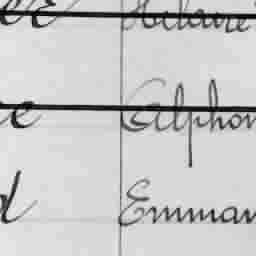 ce Hilaire
e Alphon
d Emman